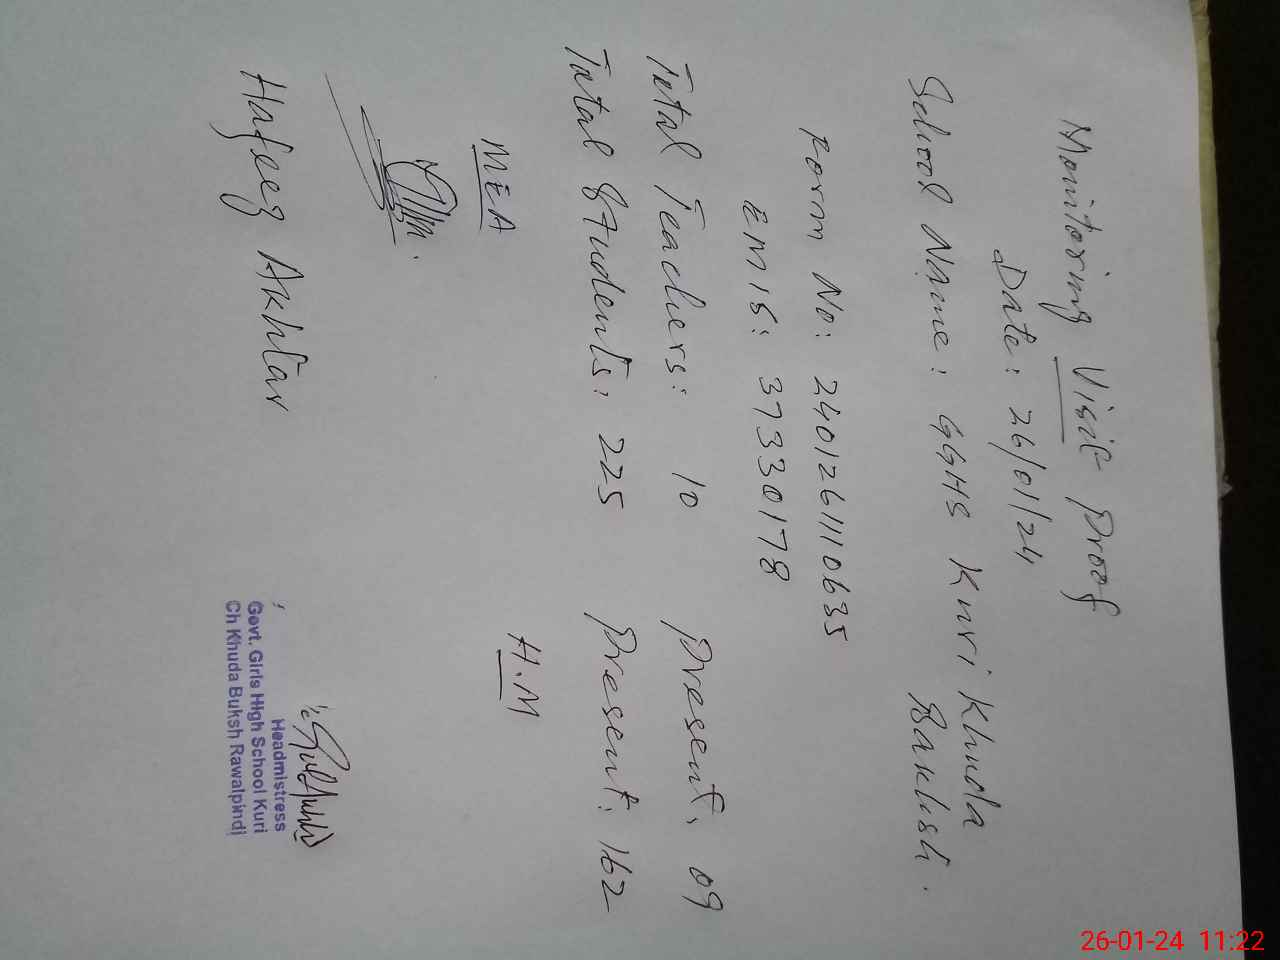 Monitoring Visit Proof
Date: 26/01/24
School Name: GGHS Kuri Khuda
Bakhsh.
Form No: 2401261110635
EMIS: 37330178
Total Teachers: 10 Present: 09
Total Students: 225 Present: 162
MEA H.M
Hafeez Akhtar
Headmistress
Govt. Girls High School Kuri
Ch Khuda Buksh Rawalpindi
26-01-24 11:22